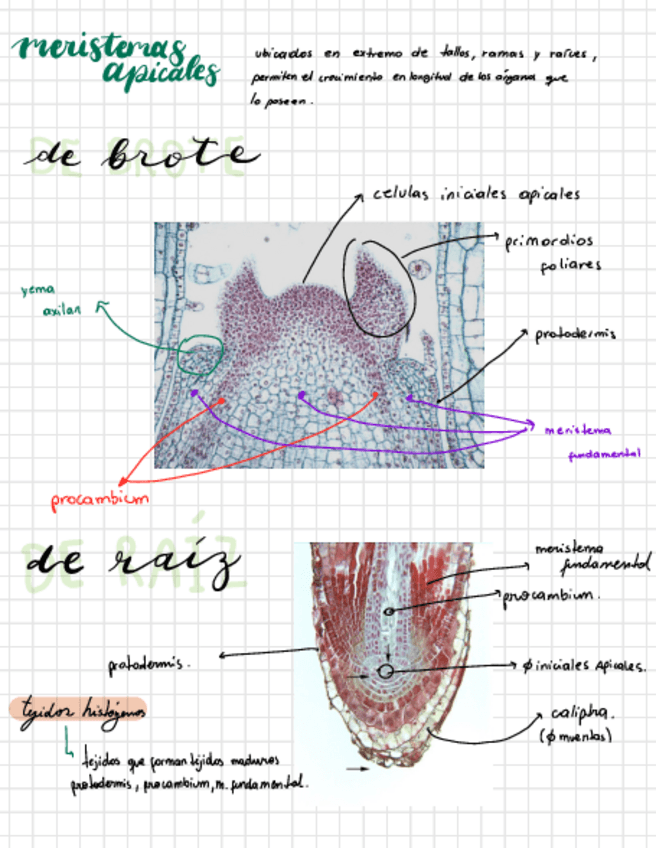 meristemas
apicales
ubicados en extremo de tallos, ramas y raíces,
permiten el crecimiento en longitud de los órganos que
lo poseen.
DE BROTE
de brote
celulas iniciales apicales
primordios
foliares
yema
axilar
protodermis
meristema
fundamental
procambium
DE RAÍZ
de raíz
meristema
fundamental
procambium.
protodermis.
φ iniciales Apicales.
caliptra.
(φ muertas)
tejidos histógenos
tejidos que forman tejidos maduros
protodermis, procambium, m. fundamental.